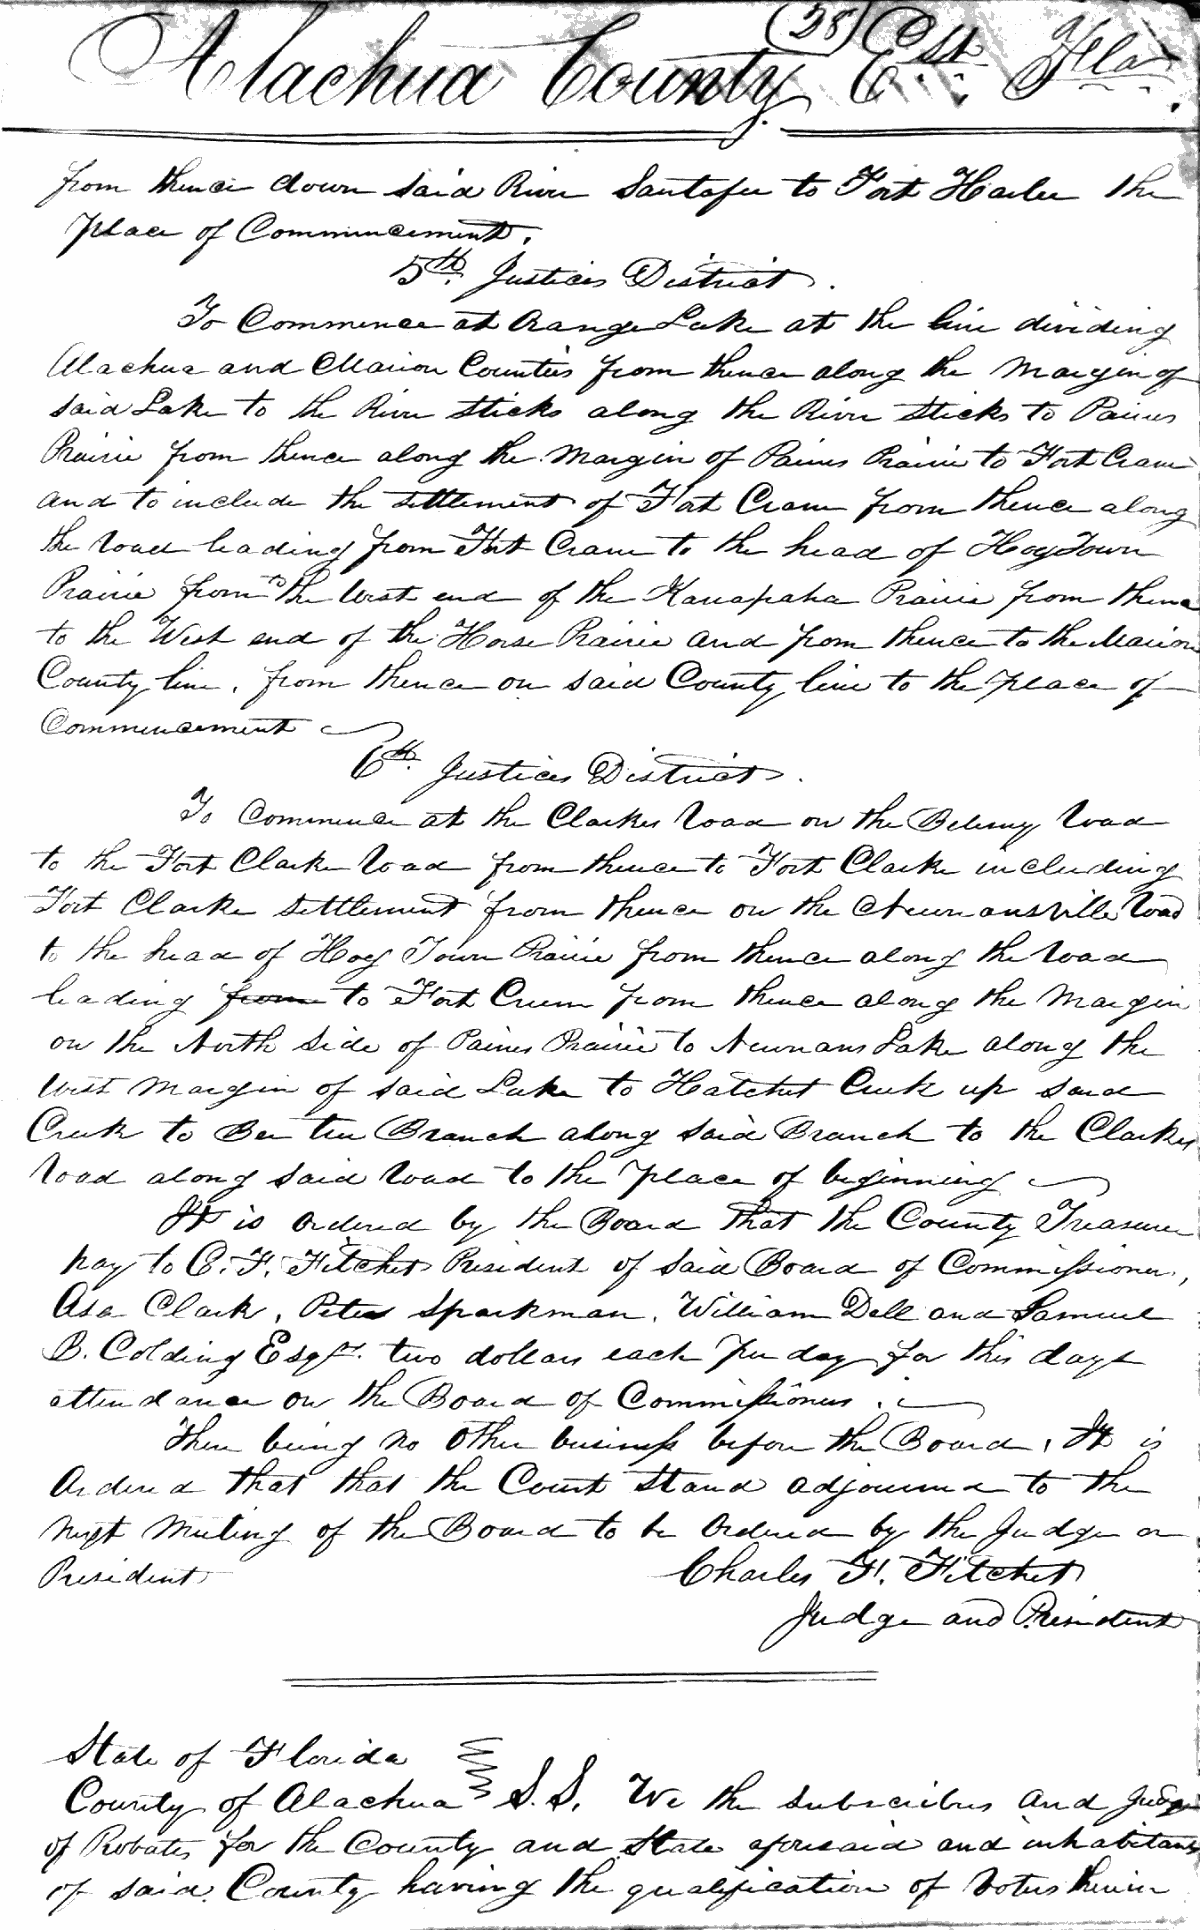 (28)
Alachua County Est. Fla.
from thence down said River Santafee to Fort Harlee the
place of Commencement.
5th. Justices District.
To Commence at Orange Lake at the line dividing
Alachua and Marion Counties from thence along the Margin of
said Lake to the River Sticks along the River Sticks to Paines
Prairie from thence along the Margin of Paines Prairie to Fort Crane
and to include the settlement of Fort Crane from thence along
the road leading from Fort Crane to the head of Hog Town
Prairie from to the West end of the Kanapaha Prairie from thence
to the West end of the Horse Prairie and from thence to the Marion
County line, from thence on said County line to the place of
Commencement
6th. Justices District.
To Commence at the Clarkes road on the Bellamy road
to the Fort Clark road from thence to Fort Clarke including
Fort Clarke settlement from thence on the Newnansville Road
to the head of Hog Town Prairie from thence along the road
leading from to Fort Crane from thence along the Margin
on the North side of Paines Prairie to Newnans Lake along the
West Margin of said Lake to Hatchet Creek up said
Creek to Bee tree Branch along said Branch to the Clarkes
road along said road to the place of beginning
It is ordered by the Board that the County Treasurer
pay to C. F. Fitchet President of said Board of Commissioners,
Asa Clark, Peter Sparkman, William Dell and Samuel
B. Colding Esqrs. two dollars each per day for this days
attendance on the Board of Commissioners.
There being no other business before the Board, It is
Ordered that that the Court Stand adjourned to the
next Meeting of the Board to be Ordered by the Judge or
President
Charles F. Fitchet
Judge and President
State of Florida
County of Alachua S.S. We the subscribers and Judge
of Probates for the County and State aforesaid and inhabitants
of said County having the qualification of Voters therein